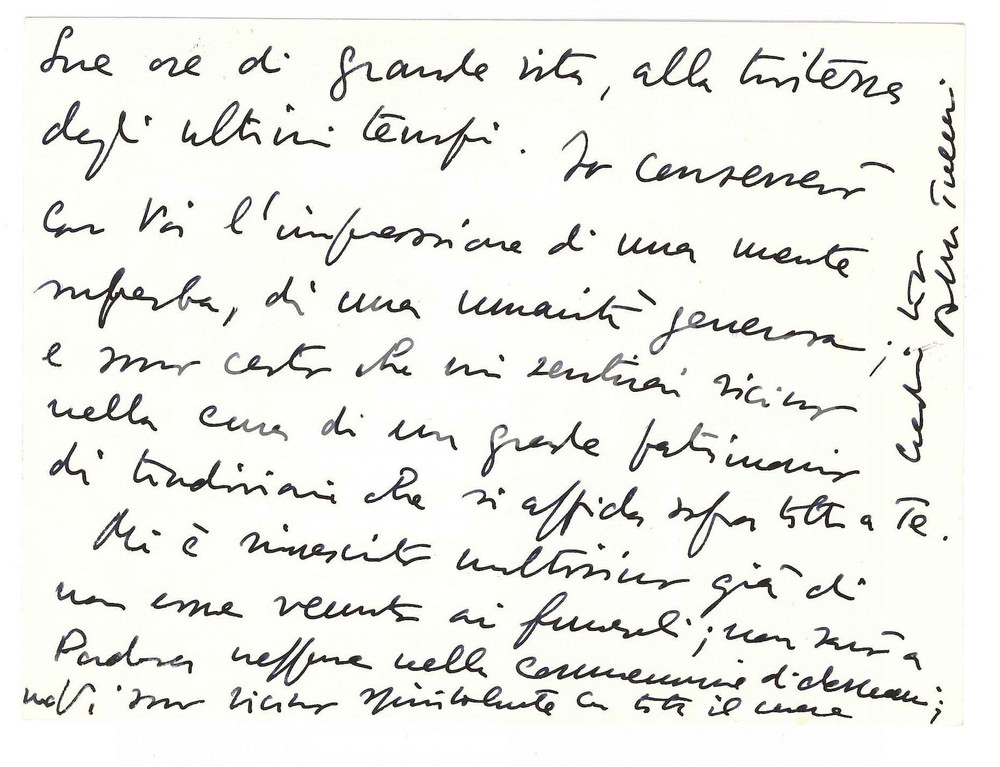 Sue ore di grande vita, alla tristezza
degli ultimi tempi. Io conserverò
con Voi l'impressione di una mente
superba, di una umanità generosa;
e sono certo che mi sentirai vicino
nella cura di un grande patrimonio
di tradizioni che si affida sopra tutto a Te.
Mi è rincresciuto moltissimo già di
non esser venuto ai funerali; non sarò a
Padova neppure nella commemorazione di domani;
ma Vi sono vicino spiritualmente con tutto il cuore
Credimi tuo